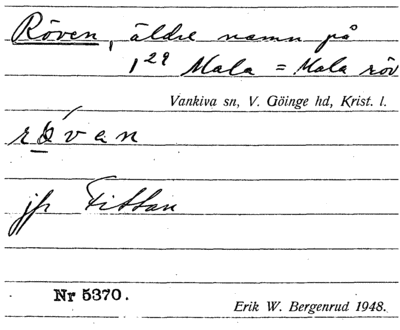 Röven, äldre namn på
1²⁹ Mala = Mala röv
Vankiva sn, V. Göinge hd, Krist. l.
jfr Fittan
Nr 5370.
Erik W. Bergenrud 1948.